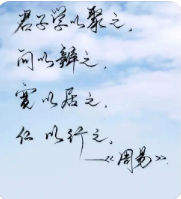 君子学以聚之，
问以辩之，
宽以居之，
仁以行之。
——《周易》